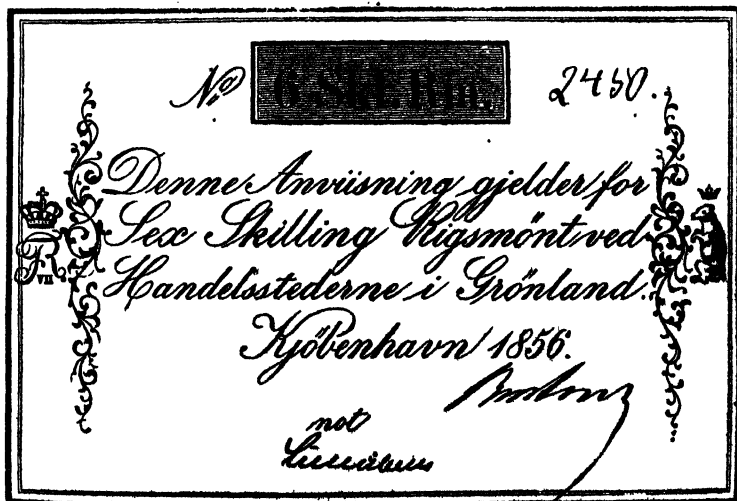 No 6 Sk. R.M. 2450.
Denne Anviisning gjelder for
Sex Skilling Rigsmönt ved
Handelsstederne i Grönland.
Kjöbenhavn 1856.
not
FR VII